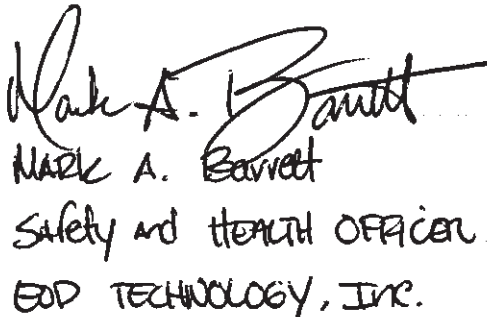 Mark A. Barrett
MARK A. Barrett
Safety and HEALTH OFFICER
EOD TECHNOLOGY, INC.